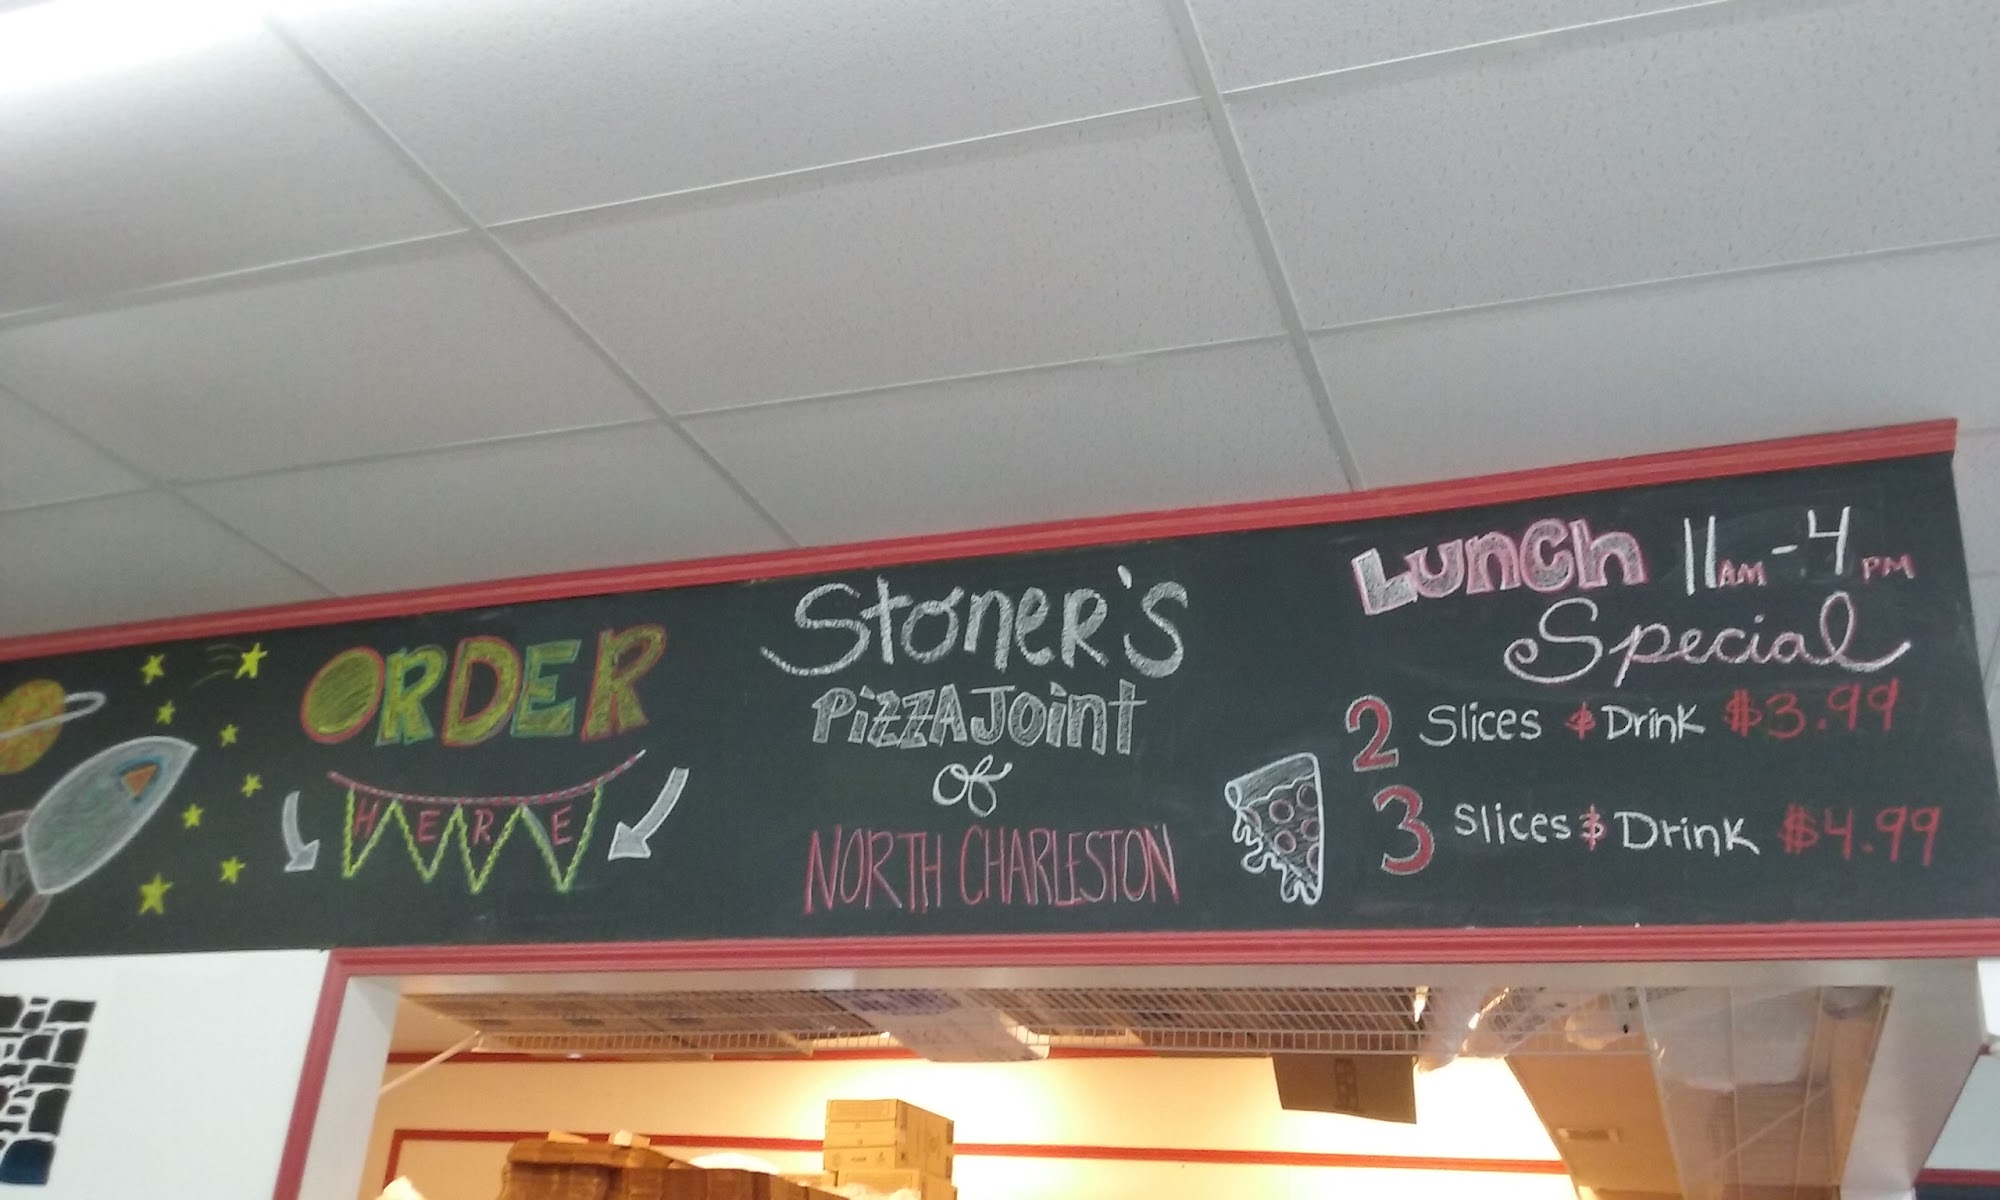 ORDER
HERE
Stoner's
Pizza Joint
of
NORTH CHARLESTON
Lunch 11AM-4PM
Special
2 Slices & Drink $3.99
3 Slices & Drink $4.99